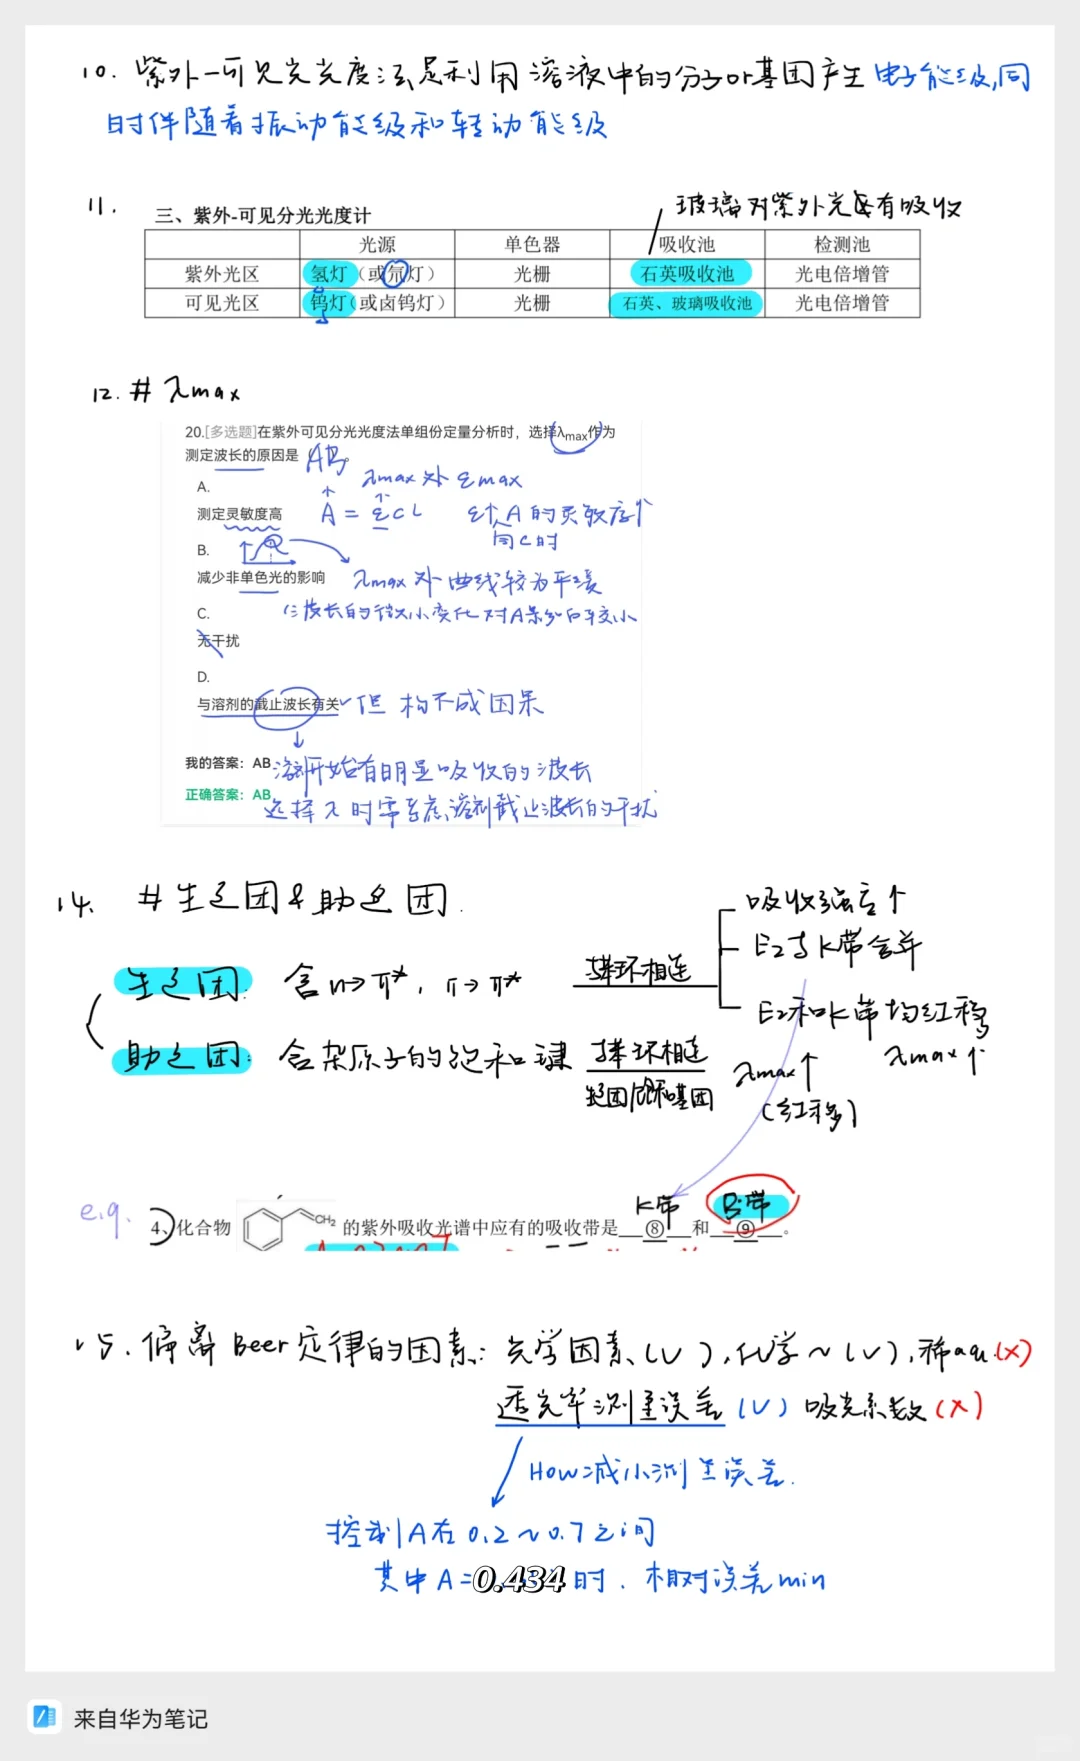 10. 紫外-可见分光光度法是利用溶液中的分子or基团产生电子能级,同
时伴随着振动能级和转动能级
11. 三、紫外-可见分光光度计
玻璃对紫外光每有吸收
光源 单色器 吸收池 检测池
紫外光区 氢灯（或氘灯） 光栅 石英吸收池 光电倍增管
可见光区 钨灯（或卤钨灯） 光栅 石英、玻璃吸收池 光电倍增管
12. # λmax
20.[多选题]在紫外可见分光光度法单组份定量分析时，选择λmax作为
测定波长的原因是（ AB
λmax处 εmax
A.
测定灵敏度高 A = εcL ε↑ A的灵敏度↑
同c时
B.
减少非单色光的影响 λmax处曲线较为平缓
C. 波长的微小变化对A影响较小
无干扰
D.
与溶剂的截止波长有关 但构不成因果
我的答案：AB 溶剂开始有明显吸收的波长
正确答案：AB 选择λ时需考虑溶剂截止波长的干扰
14. #生色团&助色团.
生色团: 含n→π*, π→π* 苯环相连 吸收强度↑
E2与K带合并
E2和K带均红移
λmax↑
助色团: 含杂原子的饱和键 苯环相连 λmax↑
(红移)
e.g. 4、化合物 CH2 的紫外吸收光谱中应有的吸收带是 ⑧ K带 和 ⑨ B带 。
15. 偏离Beer定律的因素: 光学因素(√), 化学~(√), 稀aq.(×)
透光率测量误差(√) 吸光系数(×)
How减小测量误差.
控制A在0.2~0.7之间
其中A=0.434时. 相对误差min
来自华为笔记